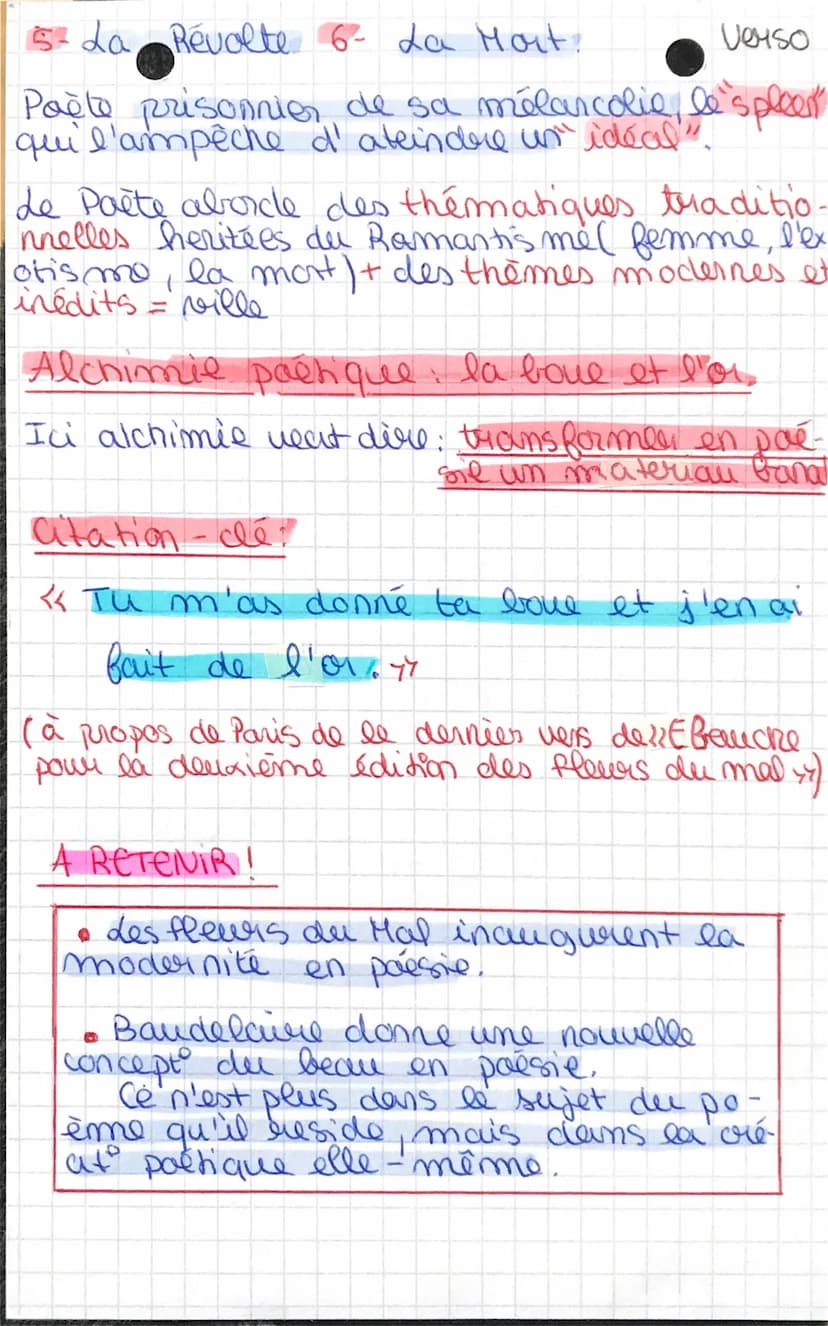 5- La Révolte 6- La Mort. Verso
Poète prisonnier de sa mélancolie, le "spleen"
qui l'ampêche d'ateindre un "idéal".
Le Poète aborde des thématiques traditio-
nnelles heritées du Romantisme ( femme, l'ex
otisme, la mort ) + des thèmes modernes et
inédits = ville
Alchimie poétique : la boue et l'or.
Ici alchimie veut dire : transformer en poé-
sie un materiau banal
Citation - clé :
« Tu m'as donné ta boue et j'en ai
fait de l'or. »
(à propos de Paris de le dernier vers de « Ebauche
pour la deuxième édition des fleurs du mal »)
A RETENIR !
• Les fleurs du Mal inaugurent la
modernité en poésie.
• Baudelaire donne une nouvelle
concept° du beau en poésie.
Ce n'est plus dans le sujet du po-
ème qu'il reside, mais dans la cré-
at° poétique elle-même.